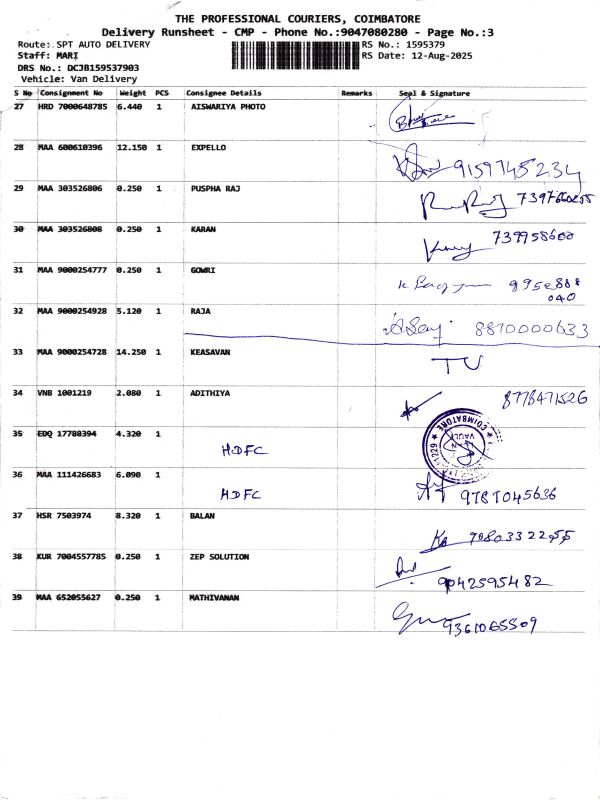 THE PROFESSIONAL COURIERS, COIMBATORE
Delivery Runsheet - CMP - Phone No.:9047080280 - Page No.:3
Route: SPT AUTO DELIVERY RS No.: 1595379
Staff: MARI RS Date: 12-Aug-2025
DRS No.: DCJB159537903
Vehicle: Van Delivery
S No Consignment No Weight PCS Consignee Details Remarks Seal & Signature
27 HRD 7000648785 6.440 1 AISWARIYA PHOTO
28 MAA 600610396 12.150 1 EXPELLO 9159745234
29 MAA 303526806 0.250 1 PUSPHA RAJ
30 MAA 303526808 0.250 1 KARAN 739958600
31 MAA 9000254777 0.250 1 GOWRI
32 MAA 9000254928 5.120 1 RAJA 8870000633
33 MAA 9000254728 14.250 1 KEASAVAN TU
34 VNB 1001219 2.080 1 ADITHIYA 8778471526
35 EDQ 17788394 4.320 1 HDFC COIMBATORE
36 MAA 111426683 6.090 1 HDFC 9787045636
37 HSR 7503974 8.320 1 BALAN
38 KUR 7004557785 0.250 1 ZEP SOLUTION 9042595482
39 MAA 652055627 0.250 1 MATHIVANAN 9361065509